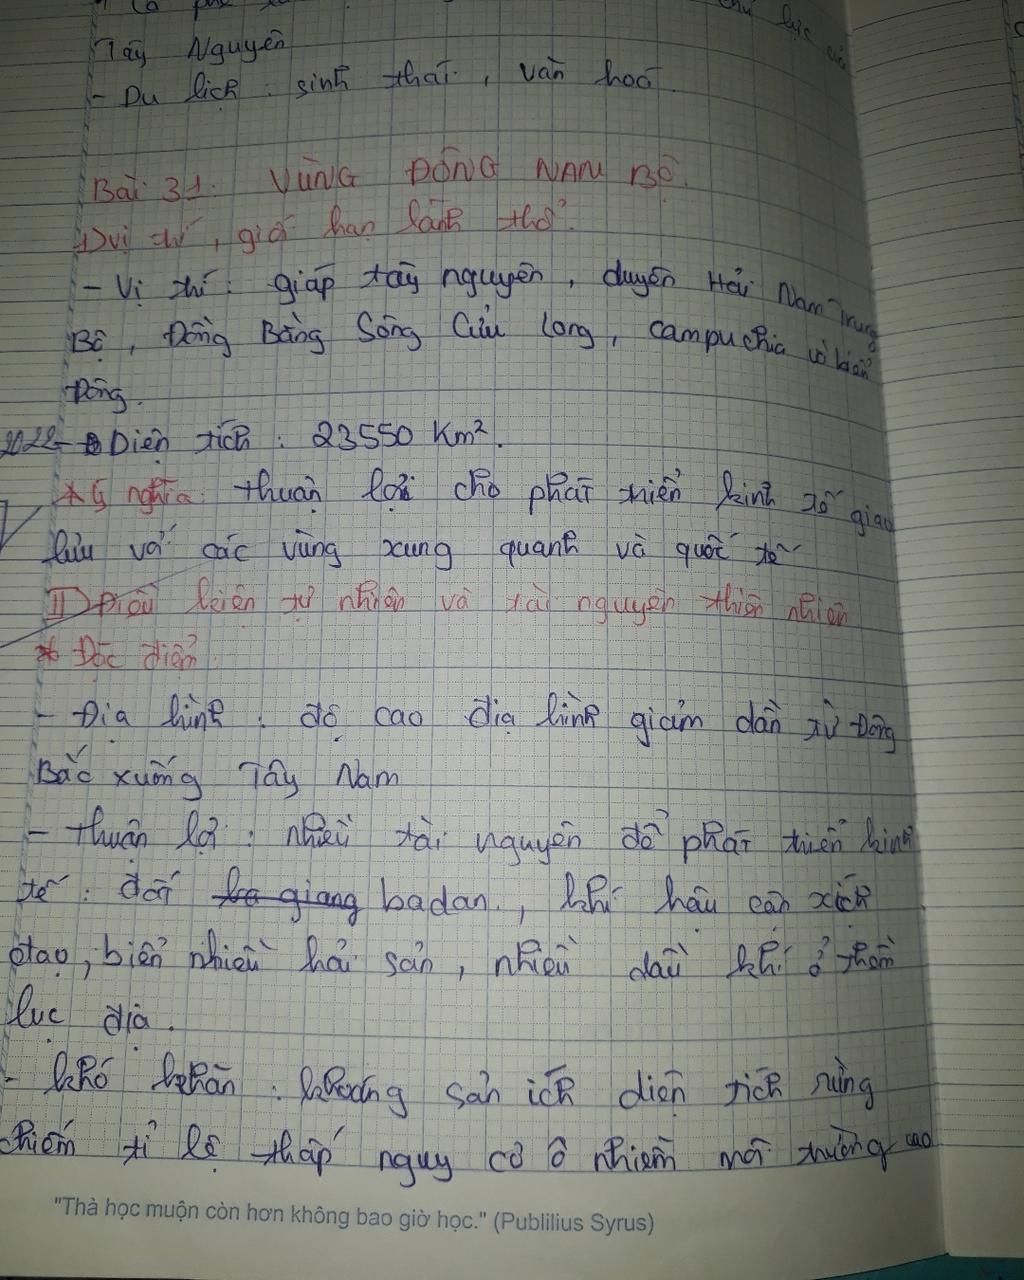 Tây Nguyên
- Du lịch : sinh thái , văn hoá .
Bài 31. VÙNG ĐÔNG NAM BỘ.
I) vị trí , giới hạn lãnh thổ.
- Vị trí : giáp tây nguyên , duyên Hải Nam Trung
Bộ , Đồng Bằng Sông Cửu Long , campuchia và biển
Đông.
2022 - Diện tích : 23550 Km².
* Ý nghĩa : thuận lợi cho phát triển kinh tế giao
lưu với các vùng xung quanh và quốc tế
II) Điều kiện tự nhiên và tài nguyên thiên nhiên
* Đặc điểm :
- Địa hình : độ cao địa hình giảm dần từ Đông
Bắc xuống Tây Nam
- thuận lợi : nhiều tài nguyên để phát triển kinh
tế : đất badan , khí hậu cận xích
đạo , biển nhiều hải sản , nhiều dầu khí ở thềm
lục địa .
- khó khăn : khoáng sản ích diện tích rừng
chiếm tỉ lệ thấp nguy cơ ô nhiễm môi trường cao
"Thà học muộn còn hơn không bao giờ học." (Publilius Syrus)